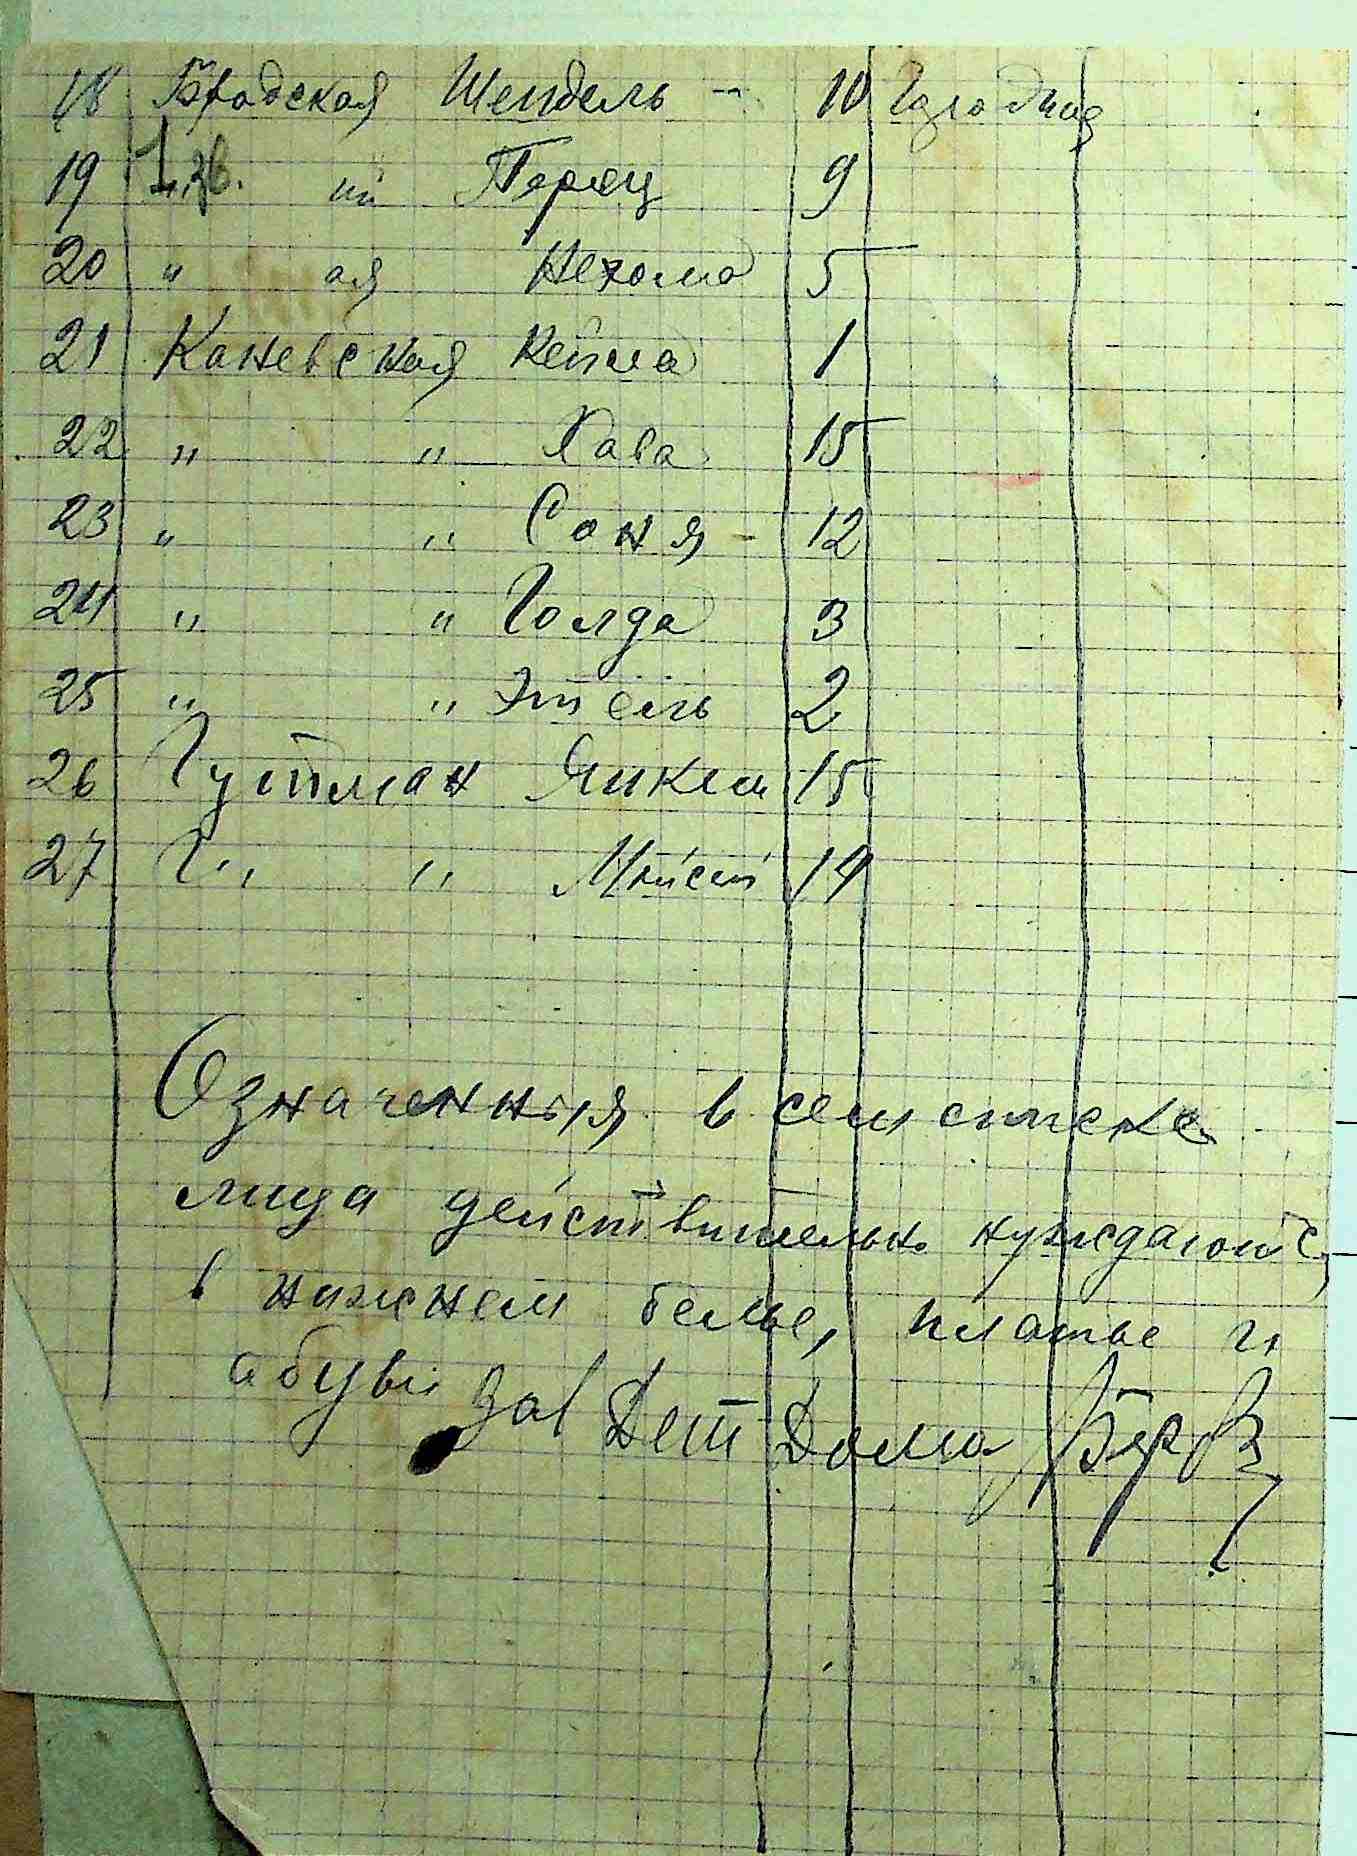 18 Бродская Шендель - 10
19 " ий Перец 9
20 " ая Нехома 5
21 Каневская Кейла 1
22 " " Хава 15
23 " " Соня - 12
24 " " Голда 3
25 " " Этель 2
26 Гутман Янкель 15
27 Г" " 14
Означенныя в сем списке
лица действительно нуждаются
в нижнем белье, платье и
обуви Зав Дет Дома